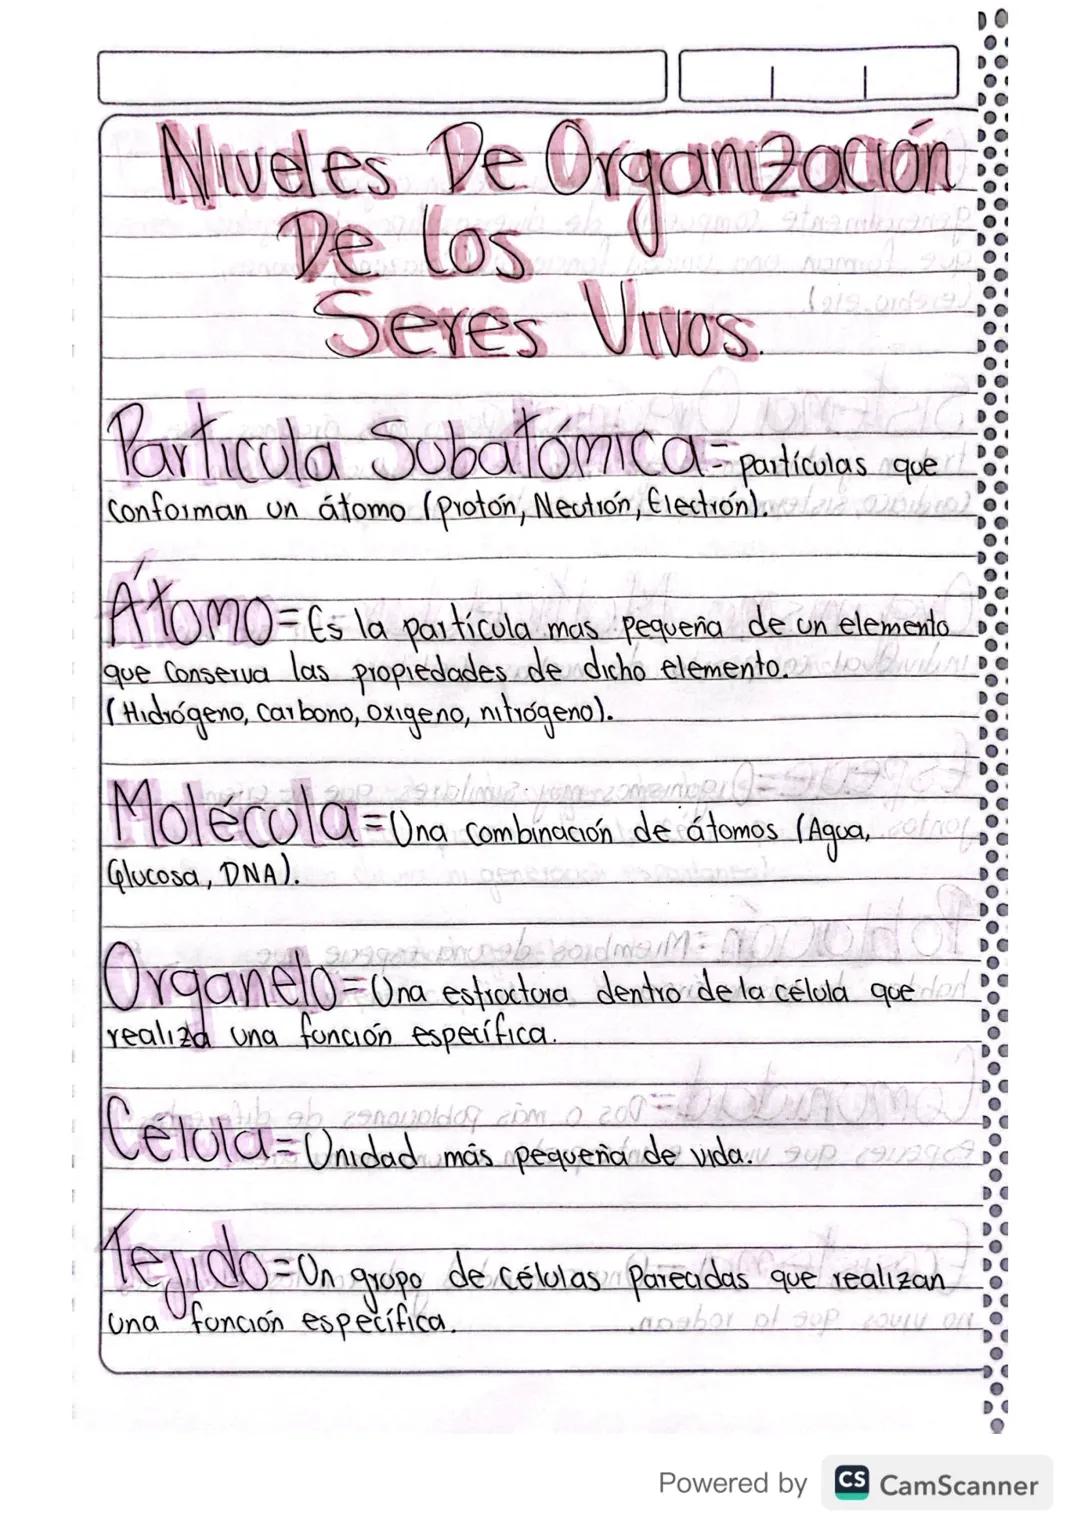 Niveles De Organización
De los
Seres Vivos.
Partícula Subatómica = partículas que
conforman un átomo (Protón, Neutrón, Electrón).
Átomo = Es la partícula mas pequeña de un elemento
que Conserva las propiedades de dicho elemento.
(Hidrógeno, Carbono, Oxigeno, nitrógeno).
Molécula = Una combinación de átomos (Agua,
Glucosa, DNA).
Órganelo = Una estructura dentro de la célula que
realiza una función específica.
Célula = Unidad más pequeña de vida.
Tejido = Un grupo de células parecidas que realizan
una función específica.
Powered by CS CamScanner